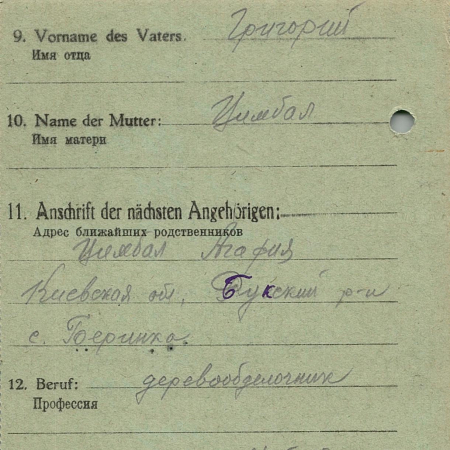 9. Vorname des Vaters. Григорий
Имя отца
10. Name der Mutter: Цимбал
Имя матери
11. Anschrift der nächsten Angehörigen:
Адрес ближайших родственников
Цимбал Агафия
Киевская об. Букский р-н
с. Беринка
12. Beruf: деревообделочник
Профессия